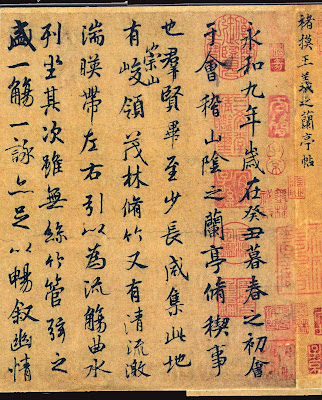 褚摸王羲之蘭亭帖
永和九年歲在癸丑暮春之初會
于會稽山陰之蘭亭脩稧事
也羣賢畢至少長咸集此地
有崇山峻領茂林脩竹又有清流激
湍暎帶左右引以為流觴曲水
列坐其次雖無絲竹管弦之
盛一觴一詠亦足以暢叙幽情